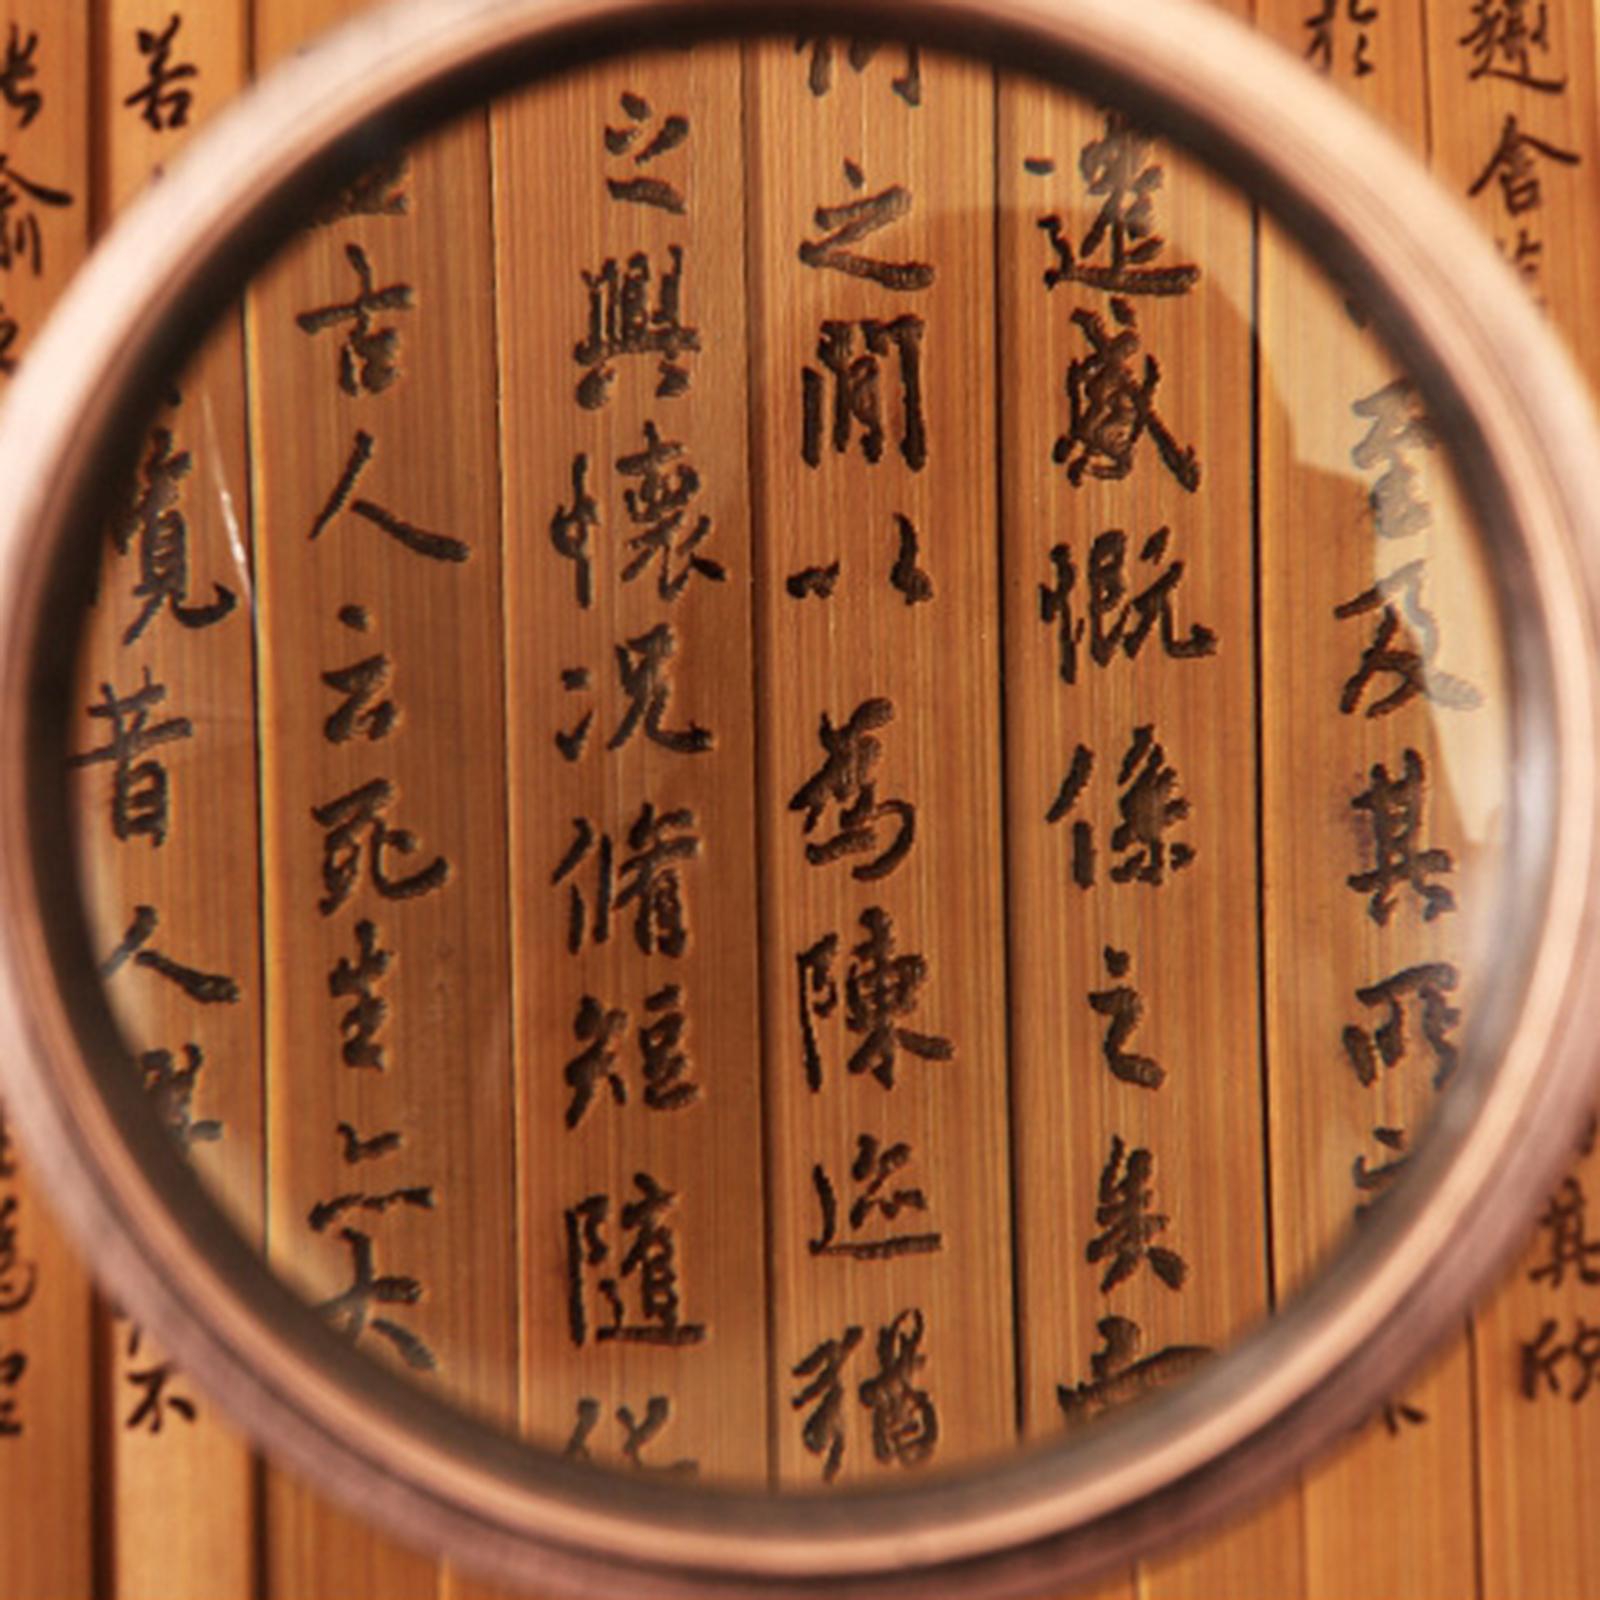 趣舍
於
至及其所
遷感慨係之矣向
之閒以為陳迹猶
之興懷况脩短隨化
古人云死生亦大
覽昔人興
若
不